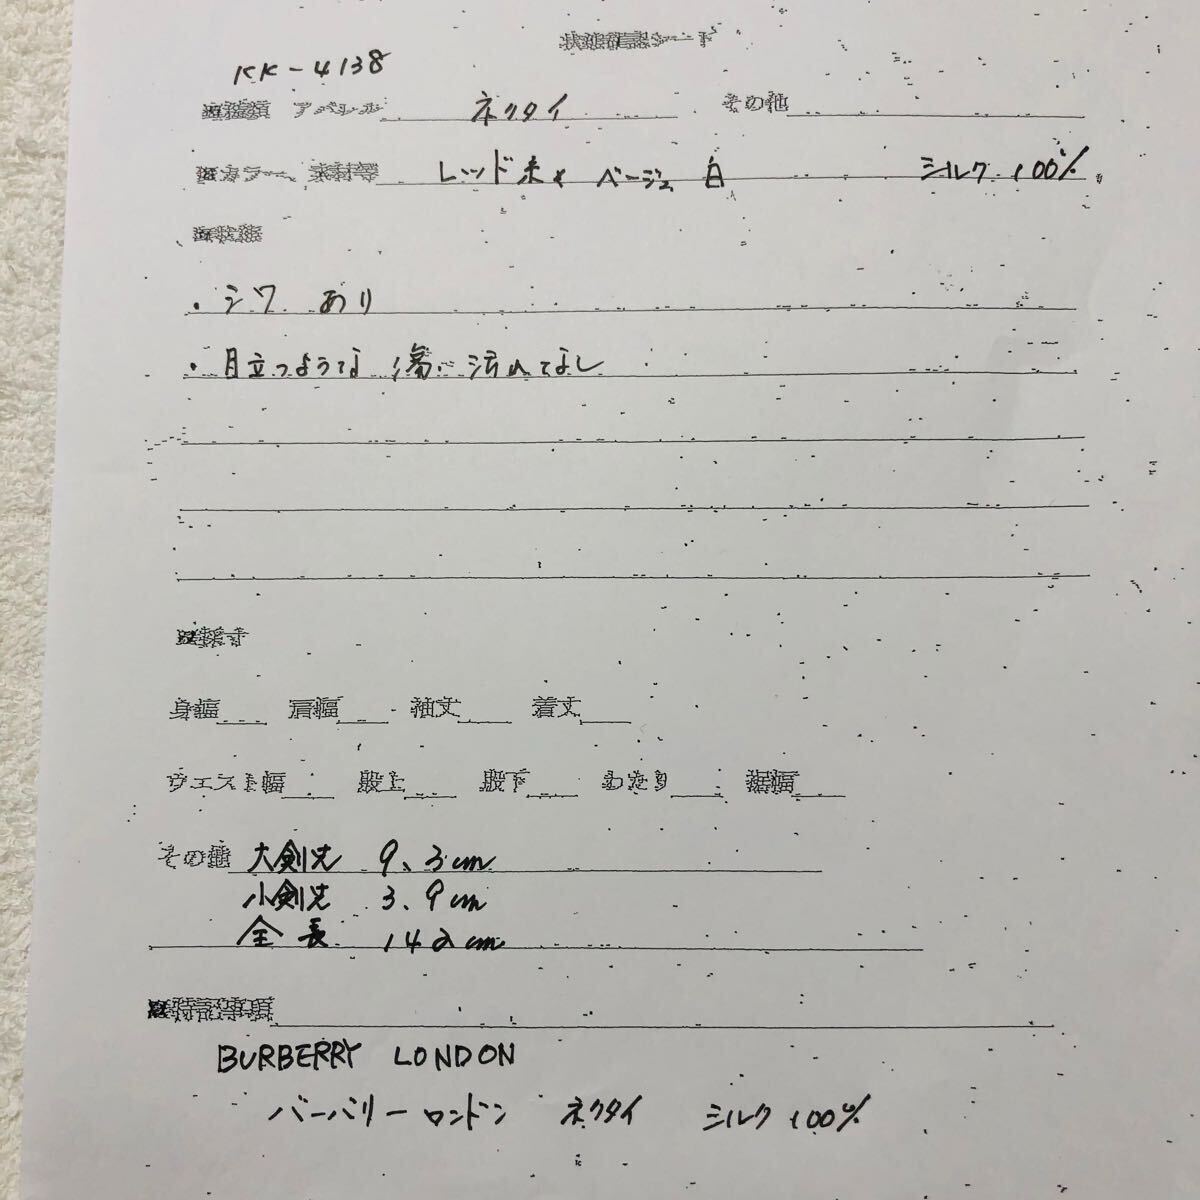 状態確認シート
KK-4138
アパレル ネクタイ その他
カラー、素材等 レッド系 ベージュ 白 シルク 100%
・シワ あり
・目立つような 傷、汚れなし
身幅 肩幅 袖丈 着丈
ウエスト幅 股上 股下 わたり 裾幅
その他 大剣先 9.3cm
小剣先 3.9cm
全長 142cm
特記事項
BURBERRY LONDON
バーバリーロンドン ネクタイ シルク 100%